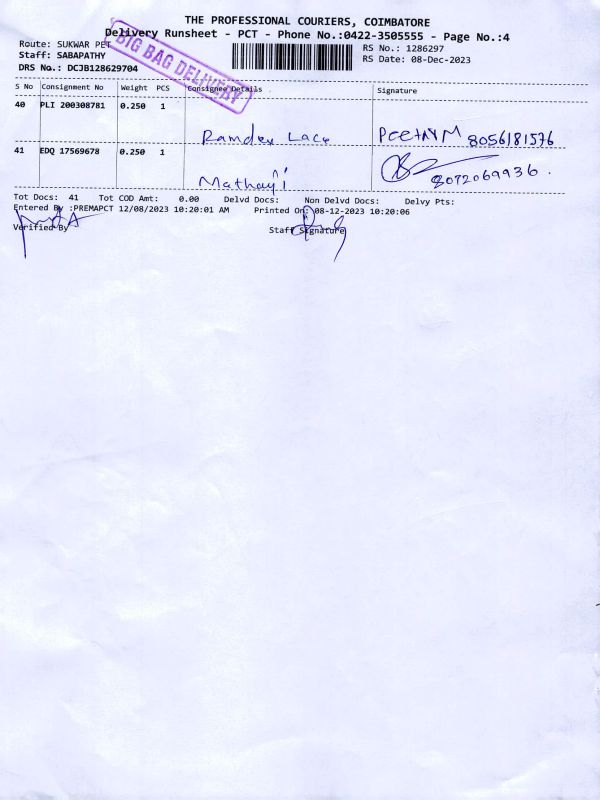 THE PROFESSIONAL COURIERS, COIMBATORE
Delivery Runsheet - PCT - Phone No.:0422-3505555 - Page No.:4
Route: SUKWAR PET
Staff: SABAPATHY
DRS No.: DCJB128629704
BIG BAG DELIVERY
RS No.: 1286297
RS Date: 08-Dec-2023
S No Consignment No Weight PCS Consignee Details Signature
40 PLI 200308781 0.250 1
Ramdev Lace 8056181576
41 EDQ 17569678 0.250 1
Mathaji 8072069936.
Tot Docs: 41 Tot COD Amt: 0.00 Delvd Docs: Non Delvd Docs: Delvy Pts:
Entered By :PREMAPCT 12/08/2023 10:20:01 AM Printed On: 08-12-2023 10:20:06
Verified By Staff Signature